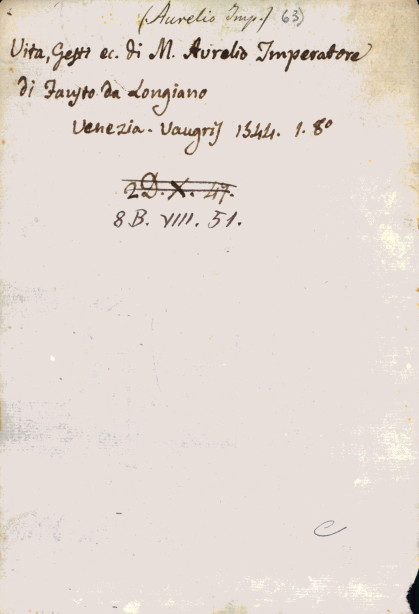 (Aurelio Imp.) 63)
Vita, Gesti ec. di M. Aurelio Imperatore
di Fausto da Longiano
Venezia. Vaugris 1544. 1. 8º
2D. X. 47.
8 B. VIII. 51.
C